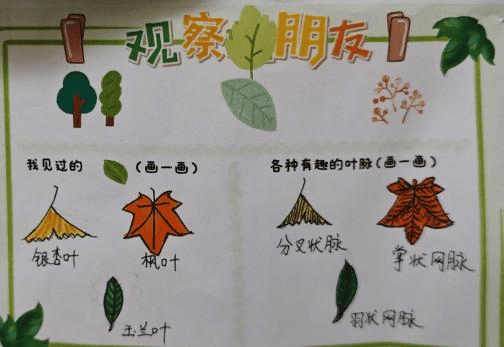 观察 朋友
我见过的 (画一画)
各种有趣的叶脉(画一画)
银杏叶
枫叶
分叉状脉
掌状网脉
玉兰叶
羽状网脉